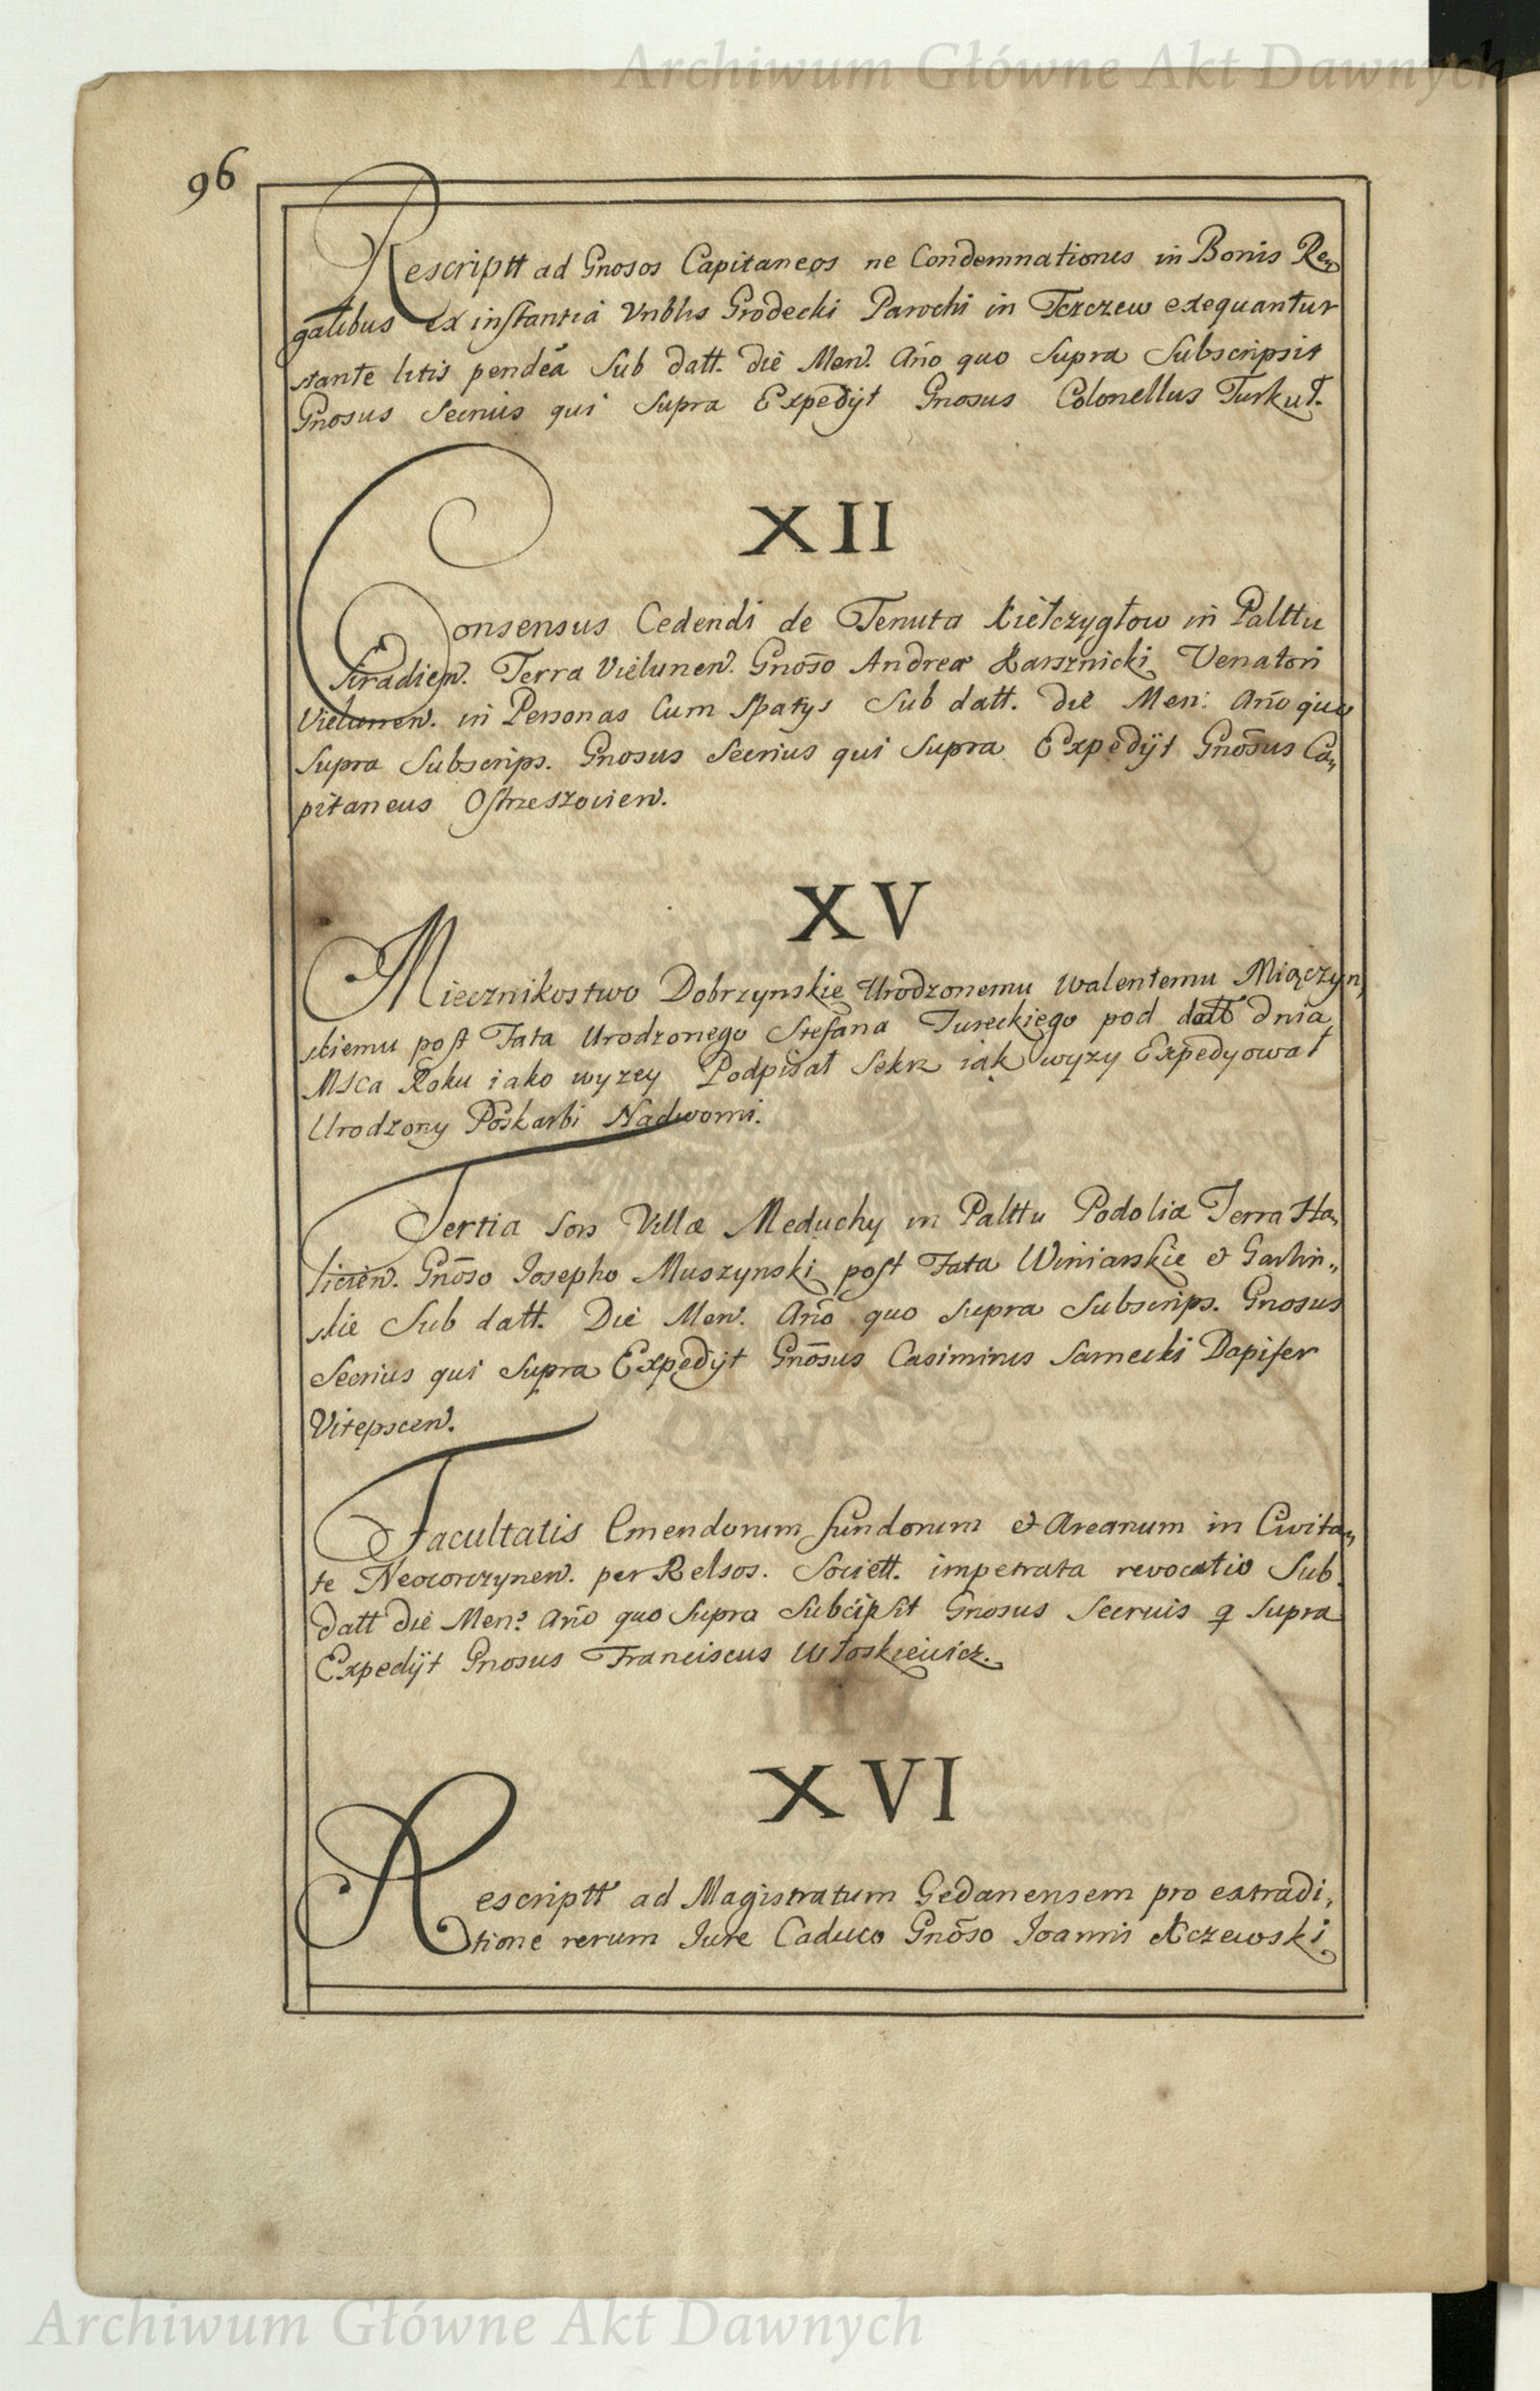 Archiwum Główne Akt Dawnych
96
Rescriptt ad Gnosos Capitaneos ne Condemnationes in Bonis Re„
galibus ex instantia Vnblis Grodecki Parochi in Tczczew exequantur
stante litis pendēa Sub datt. die Men. Año quo Supra Subscripsit
Gnosus Secrius qui Supra Expedijt Gnosus Colonellus Turkuł.
XII
Consensus Cedendi de Tenuta Kiełczygłow in Palttu
Siradien. Terra Vielunen. Gnōso Andreæ Karsznicki Venatori
Vielunen. in Personas Cum Spatys Sub datt. die Men: Año quo
Supra Subscrips. Gnosus Secrius qui Supra Expedijt Gnōsus Ca„
pitaneus Ostrzeszovien.
XV
Miecznikostwo Dobrzynskie Urodzonemu Walentemu Miączyn„
skiemu post Fata Urodzonego Stefana Tureckiego pod datt dnia
Msca Roku iako wyzey Podpisał Sekr iak wyzy Expedyował
Urodzony Poskarbi Nadworni.
Tertia Sors Villæ Meduchy in Palttu Podoliæ Terra Ha„
licien. Gnōso Josepho Muszynski post Fata Winiarskie & Garlin„
skie Sub datt. Die Men. Año quo Supra Subscrips. Gnosus
Secrius qui Supra Expedijt Gnōsus Casimirus Sarnecki Dapifer
Vitepscen.
Facultatis Emendorum fundorum & Arearum in Civita„
te Neocorczynen. per Relsos. Societt. impetrata revocatio Sub.
datt die Men: Año quo Supra Subcipsit Gnosus Secruis q Supra
Expedijt Gnosus Franciscus Włoskiewicz.
XVI
Rescriptt ad Magistratum Gedanensem pro extradi„
tione rerum Jure Caduco Gnōso Joanni Kczewski
Archiwum Główne Akt Dawnych